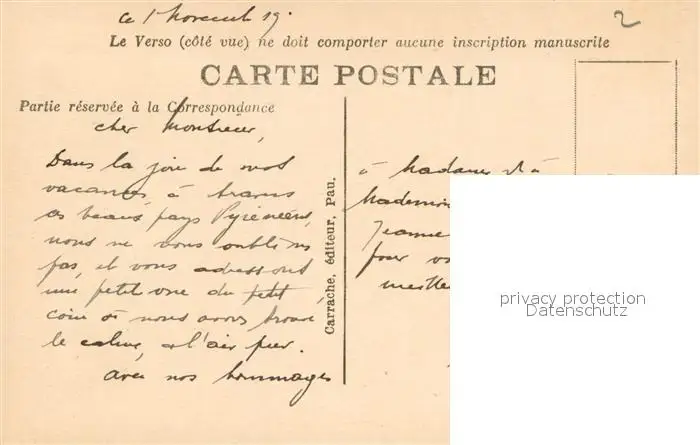 ce 1 Novemb 19.
2
Le Verso (côté vue) ne doit comporter aucune inscription manuscrite
CARTE POSTALE
Partie réservée à la Correspondance
cher Monsieur,
Dans la joie de nos
vacances, à travers
ces beaux pays Pyrénéens,
nous ne vous oublions
pas, et vous adressons
une petite vue du petit
coin où nous avons trouvé
le calme, et l'air pur.
avec nos hommages
Carrache, éditeur, Pau.
à Madame et à
Mademoi
Jeanne
pour vo
meille
privacy protection
Datenschutz